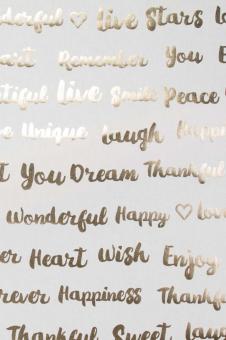 nderful ♡ Live Stars Lo
art Remember You E
tiful Live Smile Peace
e Unique laugh Happi
t You Dream Thankful
Wonderful Happy ♡ love
er Heart Wish Enjoy
rever Happiness Thankf
Thankful Sweet laug